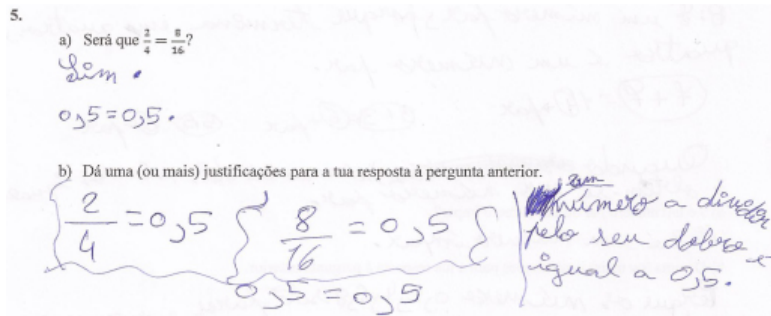 5.
a) Será que 2/4 = 8/16?
Sim.
0,5=0,5.
b) Dá uma (ou mais) justificações para a tua resposta à pergunta anterior.
2/4 = 0,5
8/16 = 0,5
0,5 = 0,5
um
número a dividir
pelo seu dobro é
igual a 0,5.